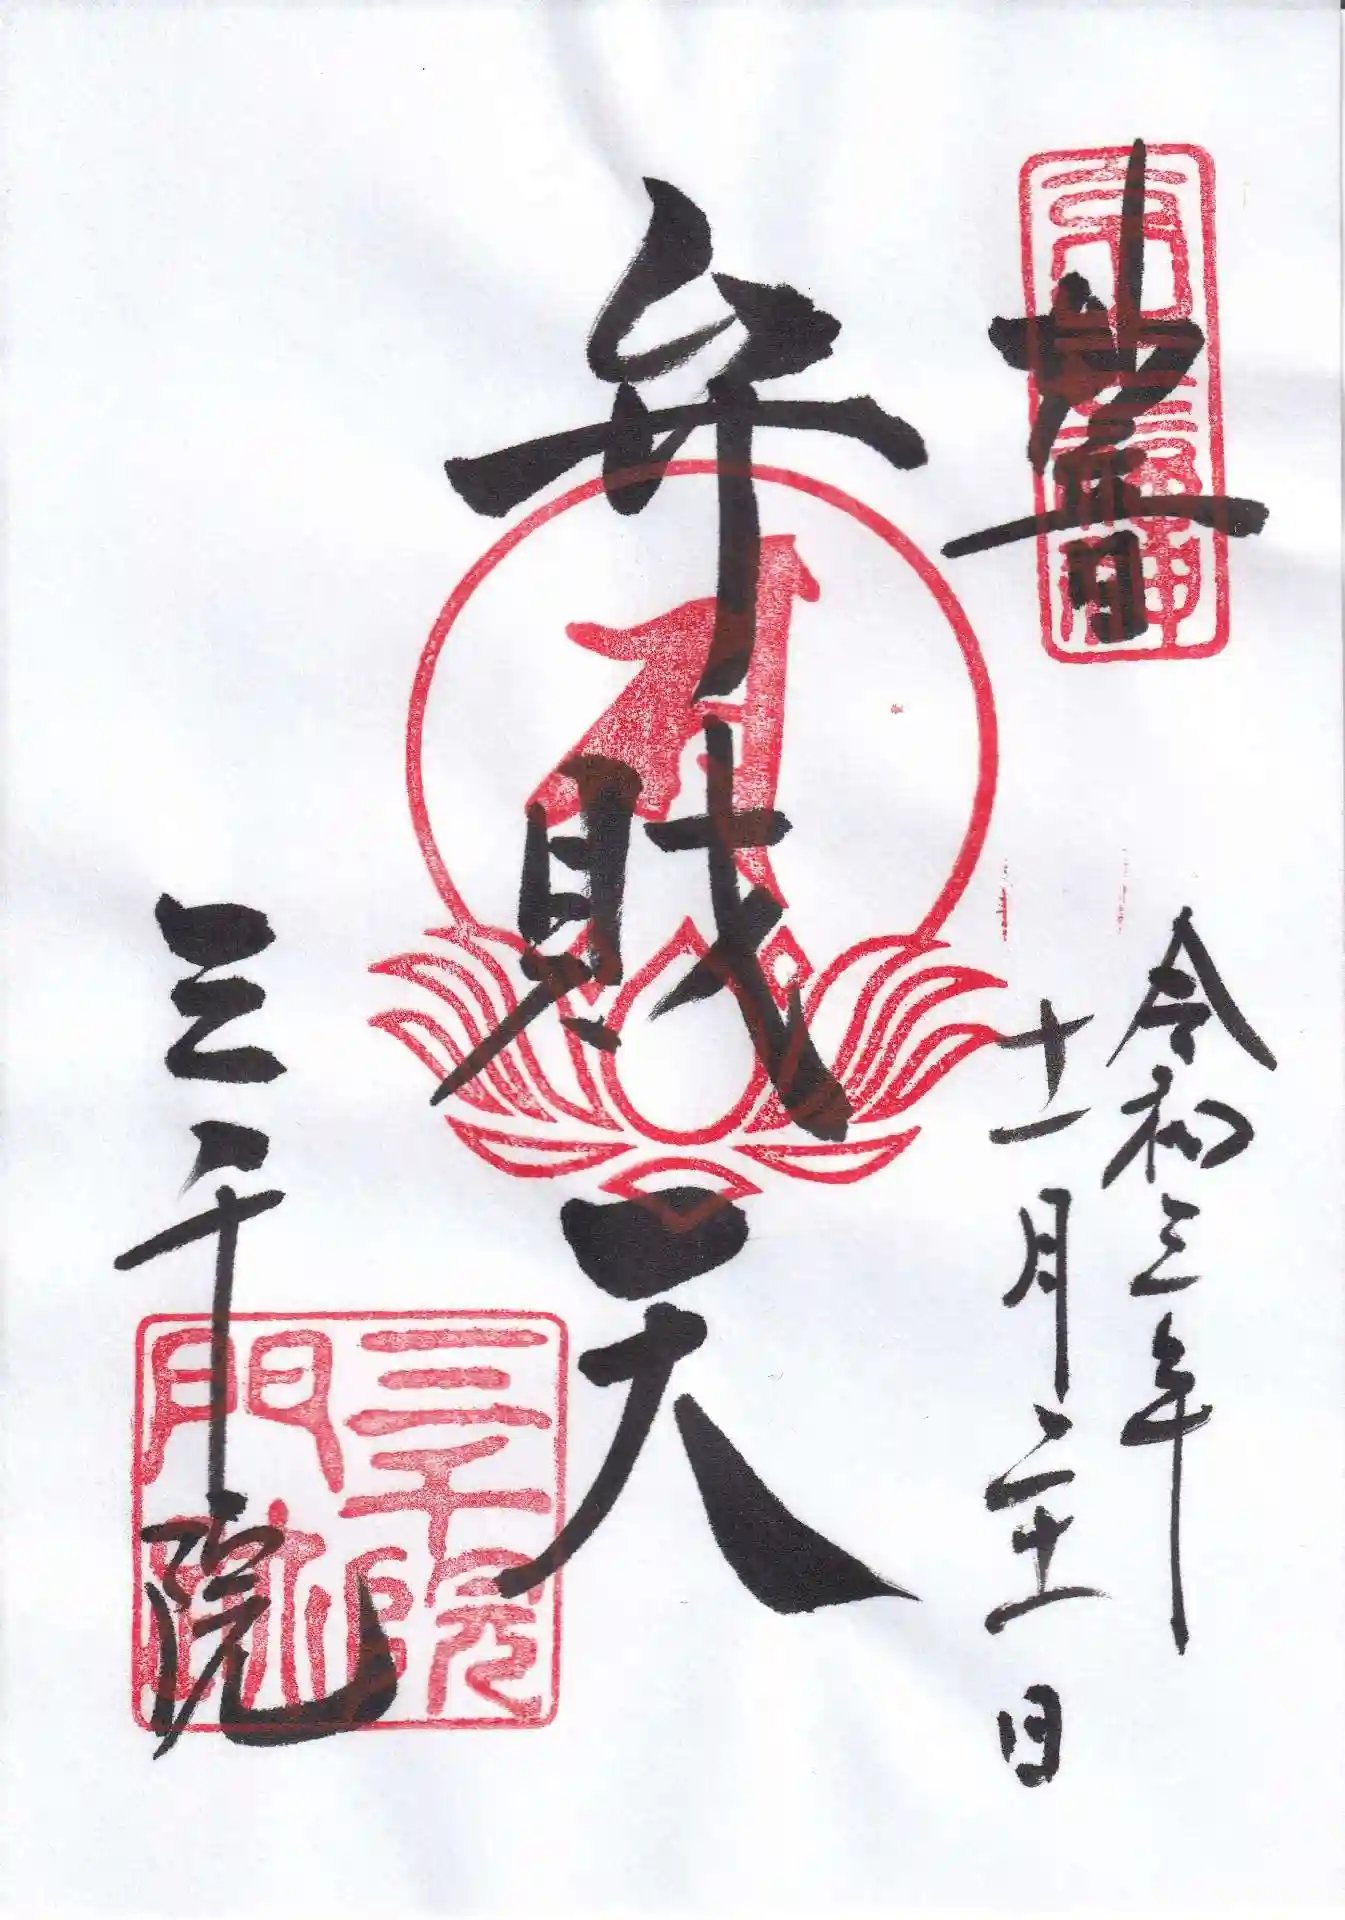 令和三年
十一月二十一日
弁財天
三千院
三千院
門跡